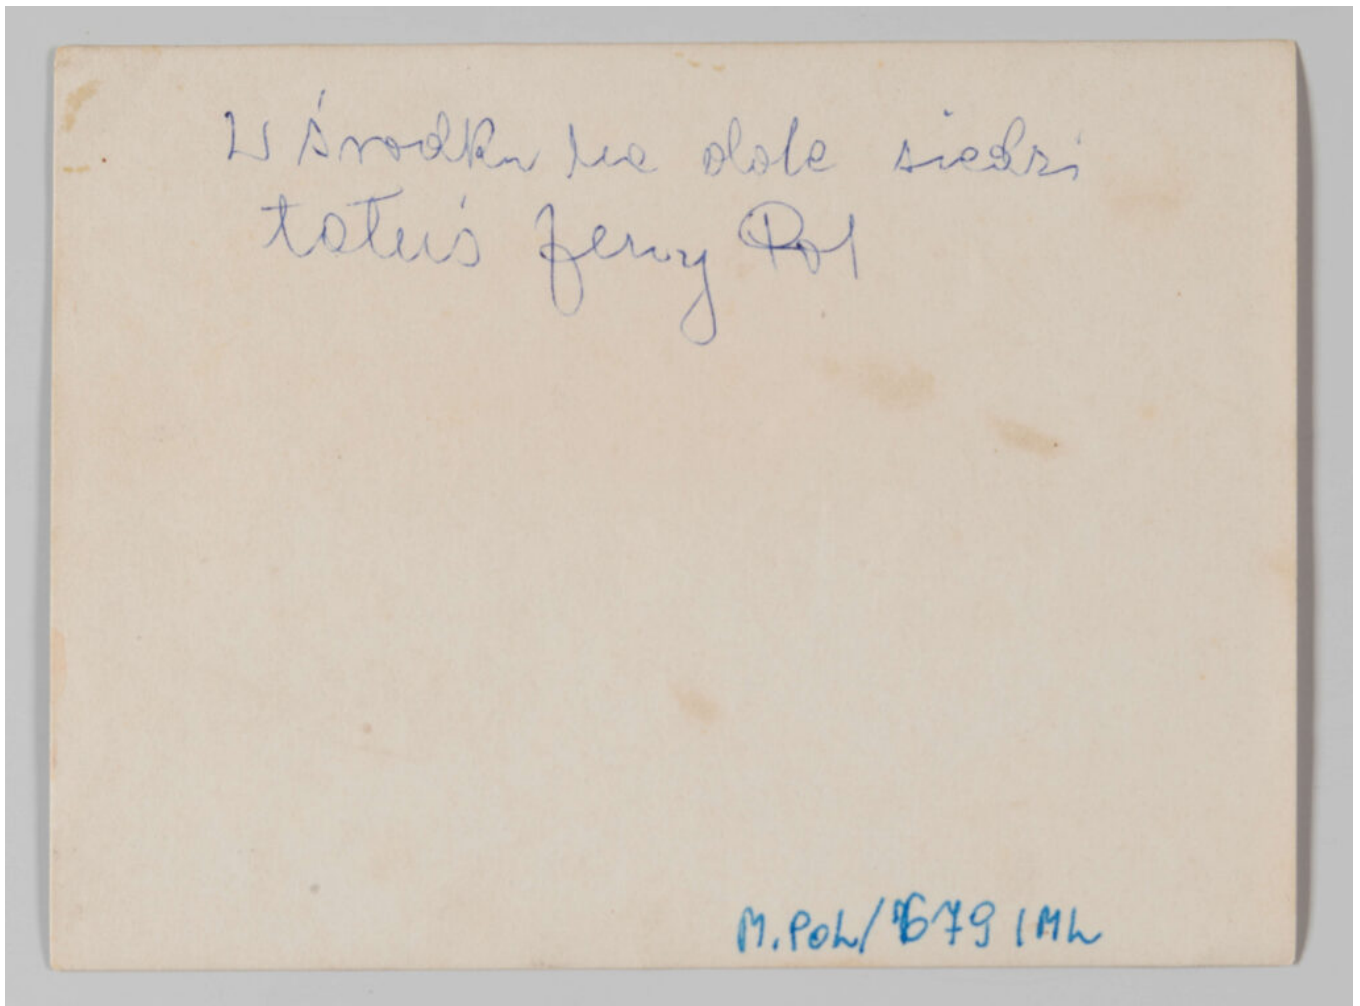 W środku na dole siedzi
tatuś Jerzy Pol
M.POL/1679/ML